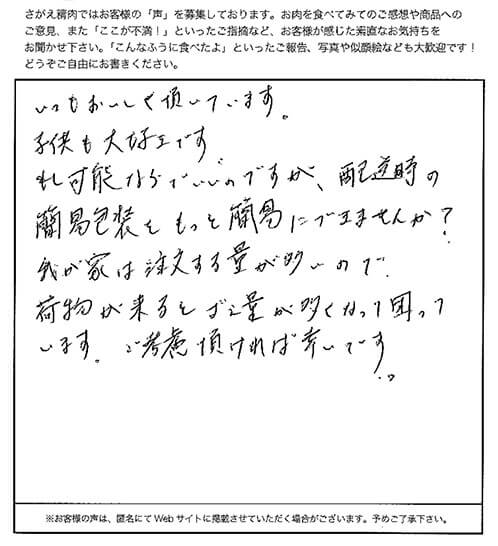 さがえ精肉ではお客様の「声」を募集しております。お肉を食べてみてのご感想や商品への
ご意見、また「ここが不満！」といったご指摘など、お客様が感じた素直なお気持ちを
お聞かせ下さい。「こんなふうに食べたよ」といったご報告、写真や似顔絵なども大歓迎です！
どうぞご自由にお書きください。
いつもおいしく頂いています。
子供も大好きです
もし可能ならでいいのですが、配送時の
簡易包装をもっと簡易にできませんか？
我が家は注文する量が多いので、
荷物が来るとゴミ量が多くなって困って
います。ご考慮頂ければ幸いです
※お客様の声は、匿名にてWebサイトに掲載させていただく場合がございます。予めご了承下さい。